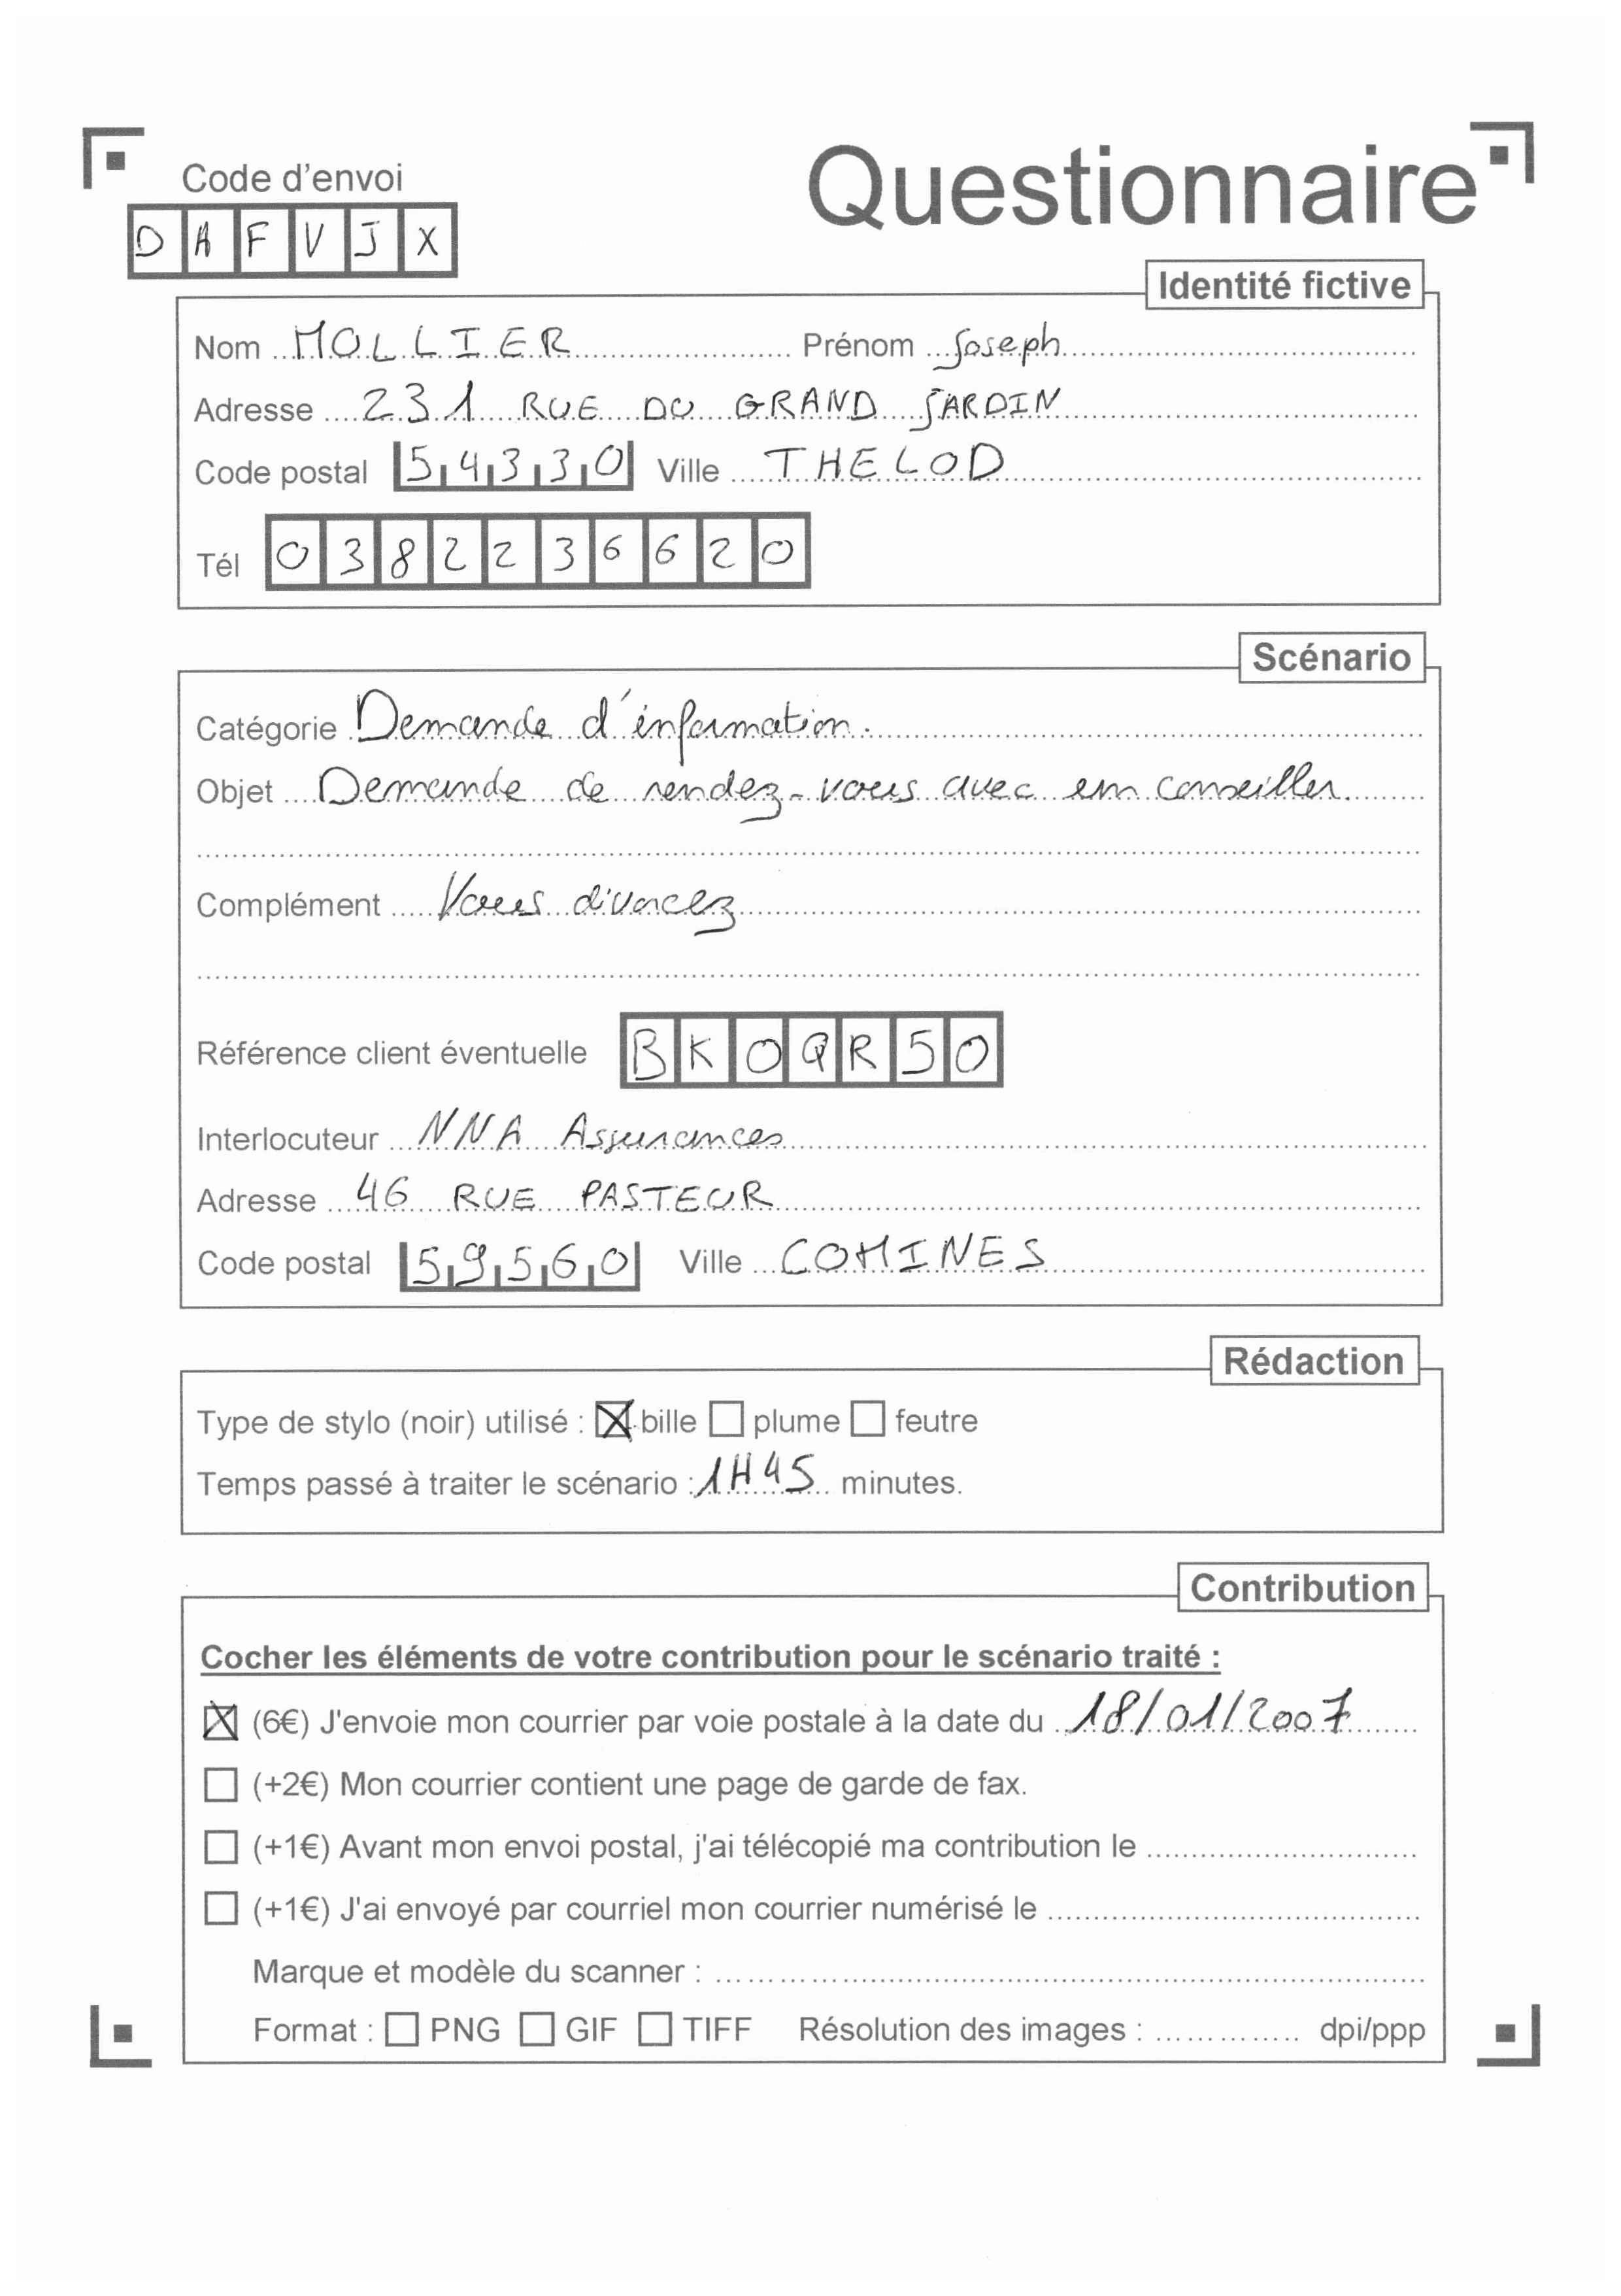 Code d'envoi
Questionnaire
DAFVJX
Identité fictive
Nom MOLLIER Prénom Joseph
Adresse 231 RUE DU GRAND JARDIN
Code postal 54330 Ville THELOD
Tél 0382236620
Scénario
Catégorie Demande d'information.
Objet Demande de rendez-vous avec un conseiller
Complément Vous divorcez
Référence client éventuelle BKOQR50
Interlocuteur NNA Assurances
Adresse 46 RUE PASTEUR
Code postal 59560 Ville COMINES
Rédaction
Type de stylo (noir) utilisé : bille plume feutre
Temps passé à traiter le scénario : 1H45 minutes.
Contribution
Cocher les éléments de votre contribution pour le scénario traité :
(6€) J'envoie mon courrier par voie postale à la date du 18/01/2007
(+2€) Mon courrier contient une page de garde de fax.
(+1€) Avant mon envoi postal, j'ai télécopié ma contribution le
(+1€) J'ai envoyé par courriel mon courrier numérisé le
Marque et modèle du scanner :
Format : PNG GIF TIFF Résolution des images : dpi/ppp